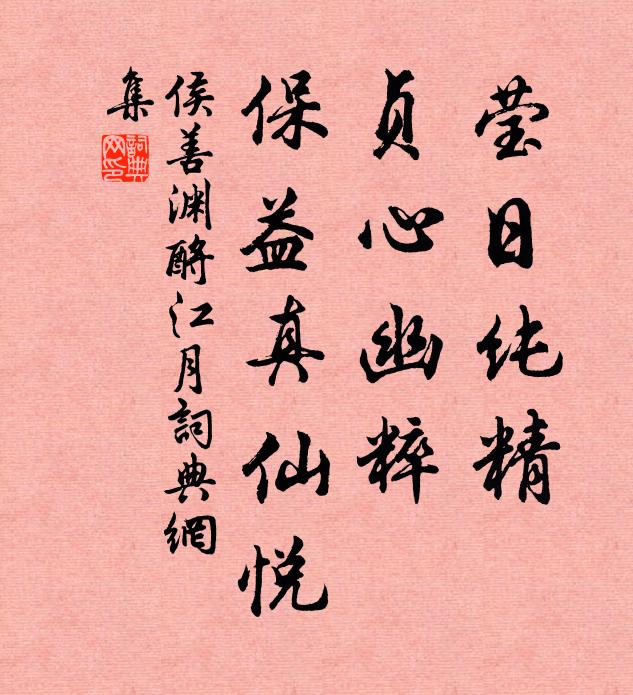 莹日纯精
贞心幽粹
保益真仙悦
侯善渊酹江月詞典網
集
詞典
网印